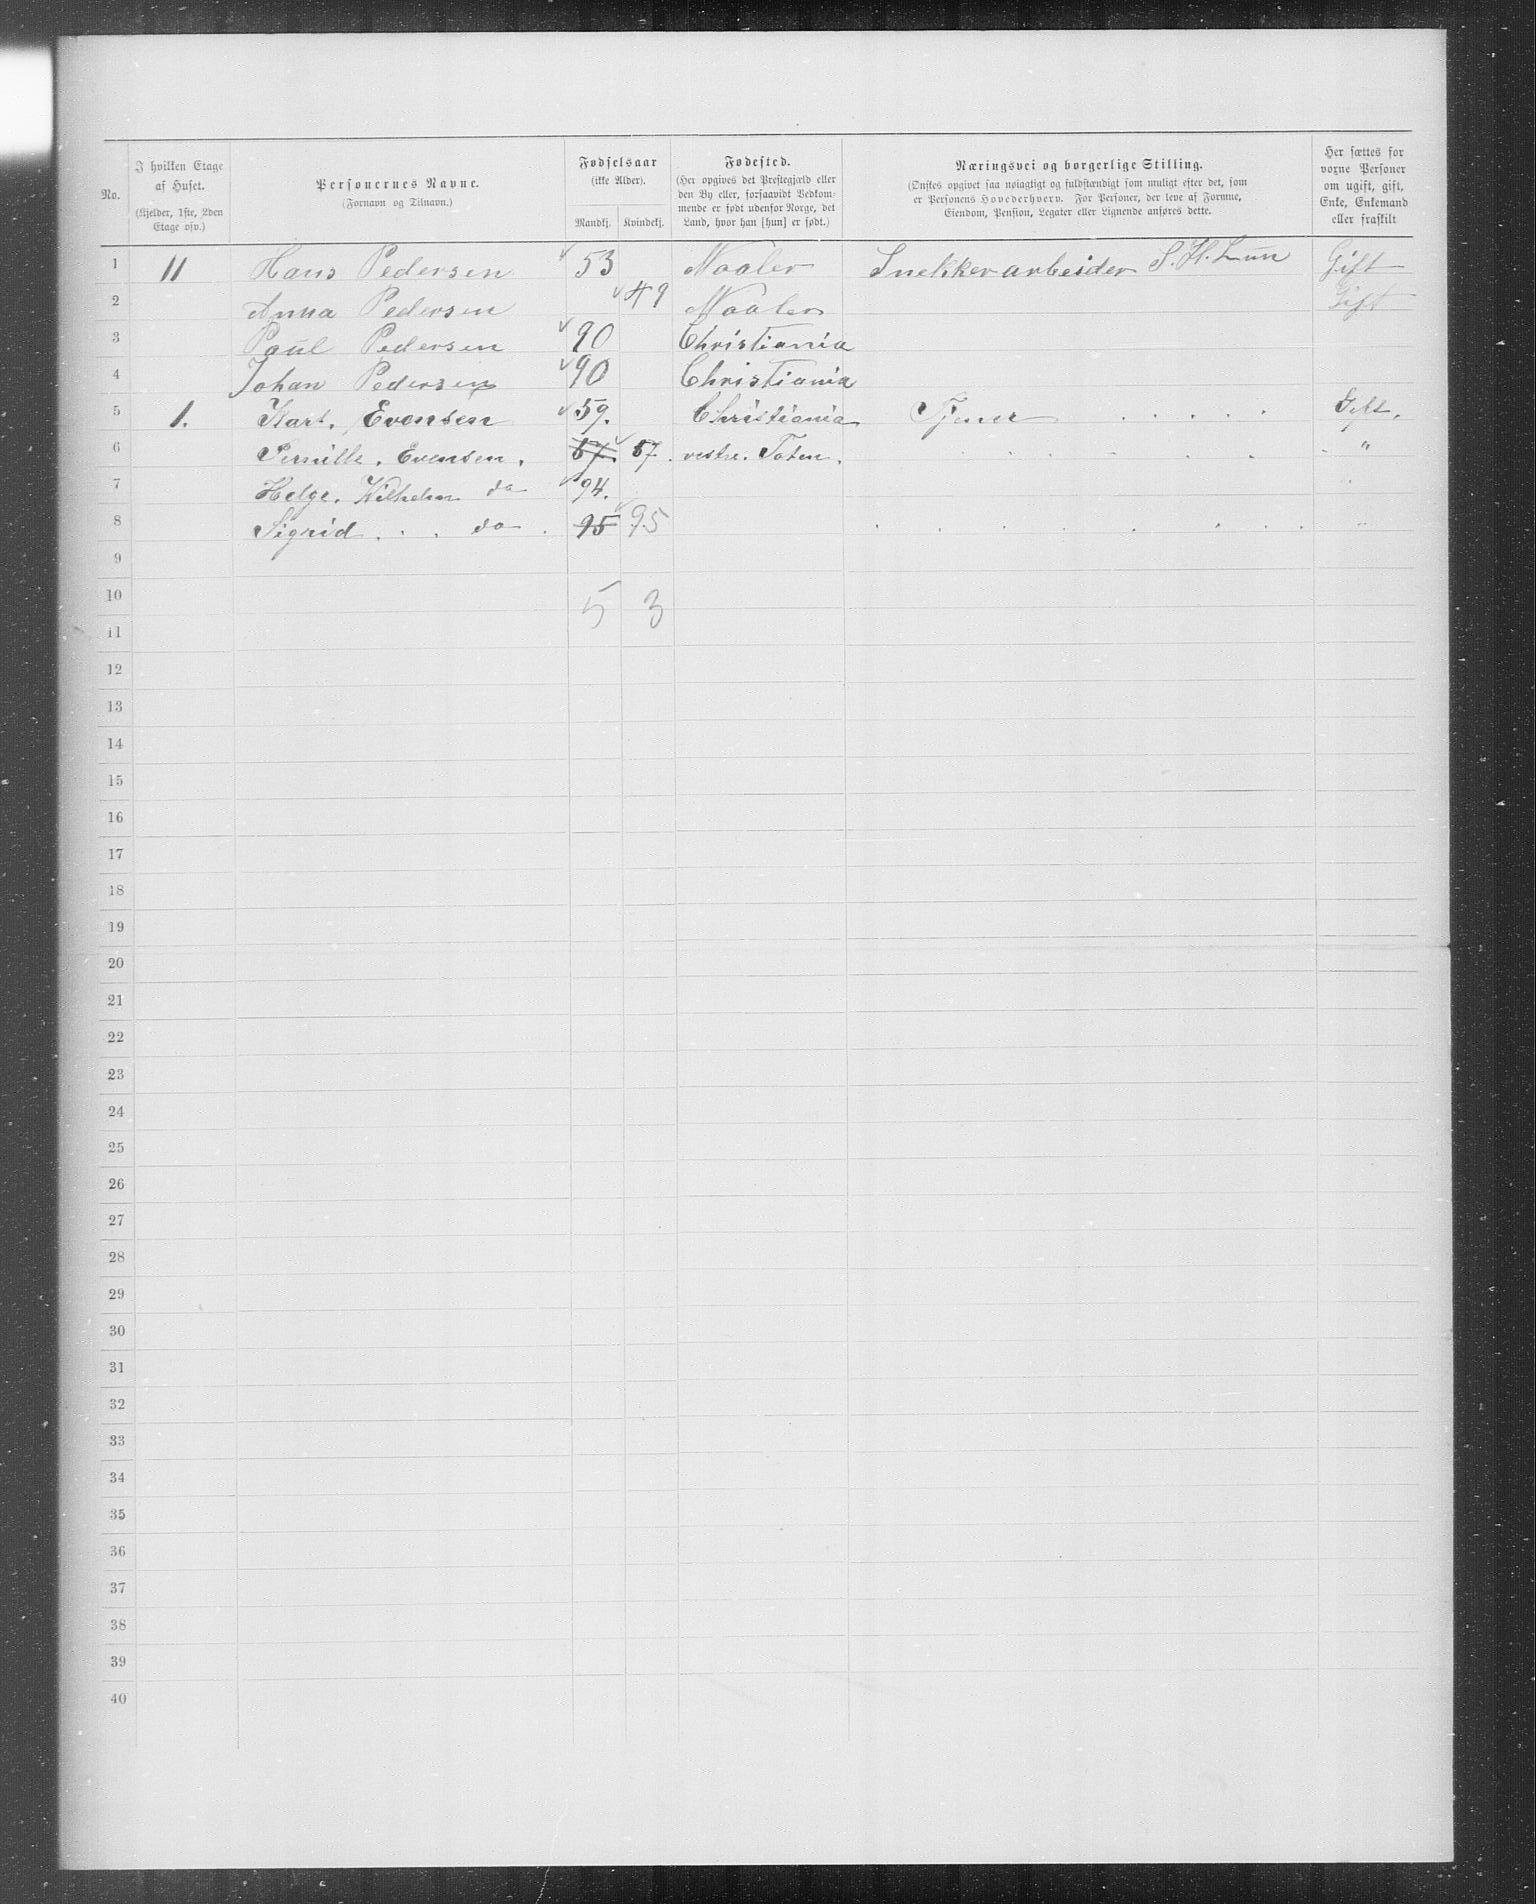 No.
I hvilken Etage af Huset. (Kjelder, 1ste, 2den Etage osv.)
Personernes Navne. (Fornavn og Tilnavn.)
Fødselsaar (ikke Alder).
Mandkj. Kvindekj.
Fødested. (Her opgives det Prestegjæld eller den By eller, forsaavidt Vedkommende er født udenfor Norge, det Land, hvor han [hun] er født.)
Næringsvei og borgerlige Stilling. (Ønskes opgivet saa nøiagtigt og fuldstændigt som muligt efter det, som er Personens Hovederhverv. For Personer, der leve af Formue, Eiendom, Pension, Legater eller Lignende anføres dette.)
Her sættes for voxne Personer om ugift, gift, Enke, Enkemand eller fraskilt
1 11 Hans Pedersen 53 Naaler Snekkerarbeider S. H. Lun Gift
2 Anna Pedersen 49 Naaler Gift
3 Paul Pedersen 90 Christiania
4 Johan Pedersen 90 Christiania
5 1. Karl. Evensen 59. Christiania Tjener Gift.
6 Pernille. Evensen. 57. 57. vestre. Toten. "
7 Helge. Wilhelm do 94. "
8 Sigrid . . . do . 95 95 "
9
10
5 3
11
12
13
14
15
16
17
18
19
20
21
22
23
24
25
26
27
28
29
30
31
32
33
34
35
36
37
38
39
40